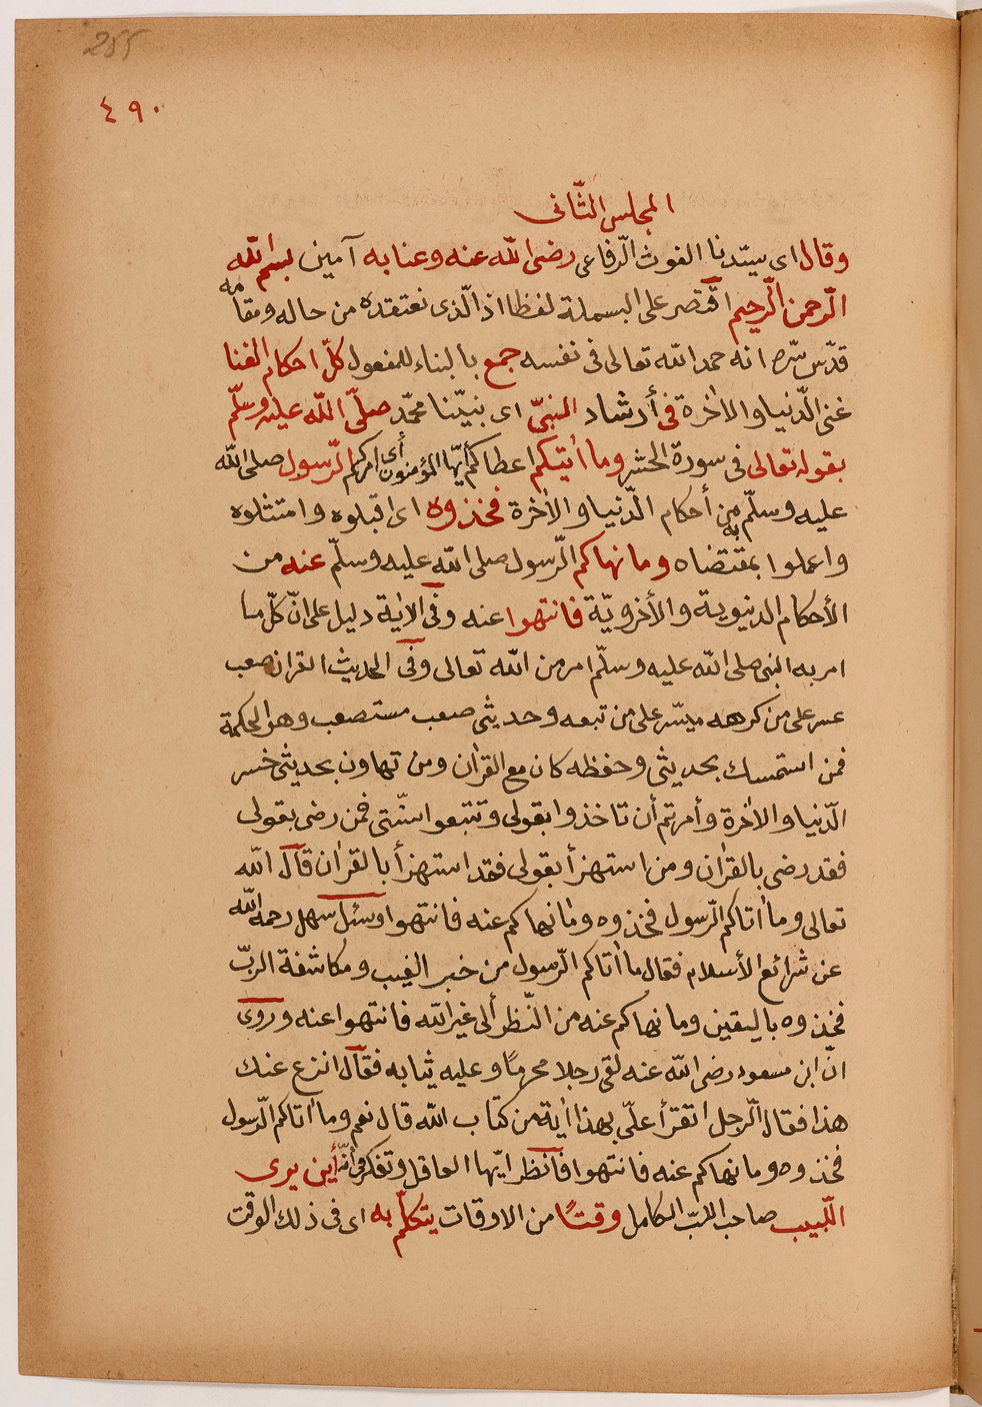 255
٤٩٠
المجلس الثّانى
وقال اى سيّدنا الغوث الّرفاعى رضى اللّه عنه وعنا به آمين بسم اللّه
الّرحمن الّرحيم اقتصر على البسملة لفظا اذ الّذى نعتقده من حاله ومقامه
قدّس سّره انه حمد اللّه تعالى فى نفسه جمع بالبناء للمفعول كلّ احكام الغنا
غنى الّدنيا والاٰخرة فى أرشاد النبىّ اى نبيّنا محمّد صلّى اللّه عليه وسلّم
بقوله تعالى فى سورة الحشر وما أتيكم اعطاكم أيّها المؤمنون أى امركم الّرسول صلى اللّه
عليه وسلّم به من أحكام الّدنيا والاٰخرة فخذوه اى اقبلوه وامتثلوه
واعملوا بمقتضاه وما نهاكم الّرسول صلى اللّه عليه وسلّم عنه من
الأحكام الدنيوية والأخرويّة فانتهوا عنه وفى الاٰية دليل على انّ كلّ ما
امر به النبى صلى اللّه عليه وسلّم امر من اللّه تعالى وفى الحديث القران صعب
عسر على من كرهه ميسّر على من تبعه وحديثى صعب مستصعب وهو الحكمة
فمن استمسك بحديثى وحفظه كان مع القراٰن ومن تهاون بحديثى خسر
الّدنيا والاٰخرة وأمرتم أن تاخذوا بقولى وتتبعوا سنّتى فمن رضى بقولى
فقد رضى بالقراٰن ومن استهزأ بقولى فقد استهزأ بالقراٰن قال اللّه
تعالى وما أتاكم الّرسول فخذوه وما نهاكم عنه فانتهوا وسئل سهل رحمه اللّه
عن شرائع الأسلام فقال ما أتاكم الّرسول من خبر الغيب ومكاشفة الربّ
فخذوه باليقين وما نهاكم عنه من النّظر ألى غير اللّه فانتهوا عنه وروى
انّ ابن مسعود رضى اللّه عنه لقى رجلا محرمًا وعليه ثيابه فقال انزع عنك
هذا فقال الّرجل اتقرأ علّى بهذا أية من كتاب اللّه قال نعم وما أتاكم الّرسول
فخذوه وما نهاكم عنه فانتهوا فانظر ايّها العاقل وتفكر فى أنّه أين يرى
اللّبيب صاحب اللبّ الكامل وقتًا من الاوقات يتكلّم به اى فى ذلك الوقت